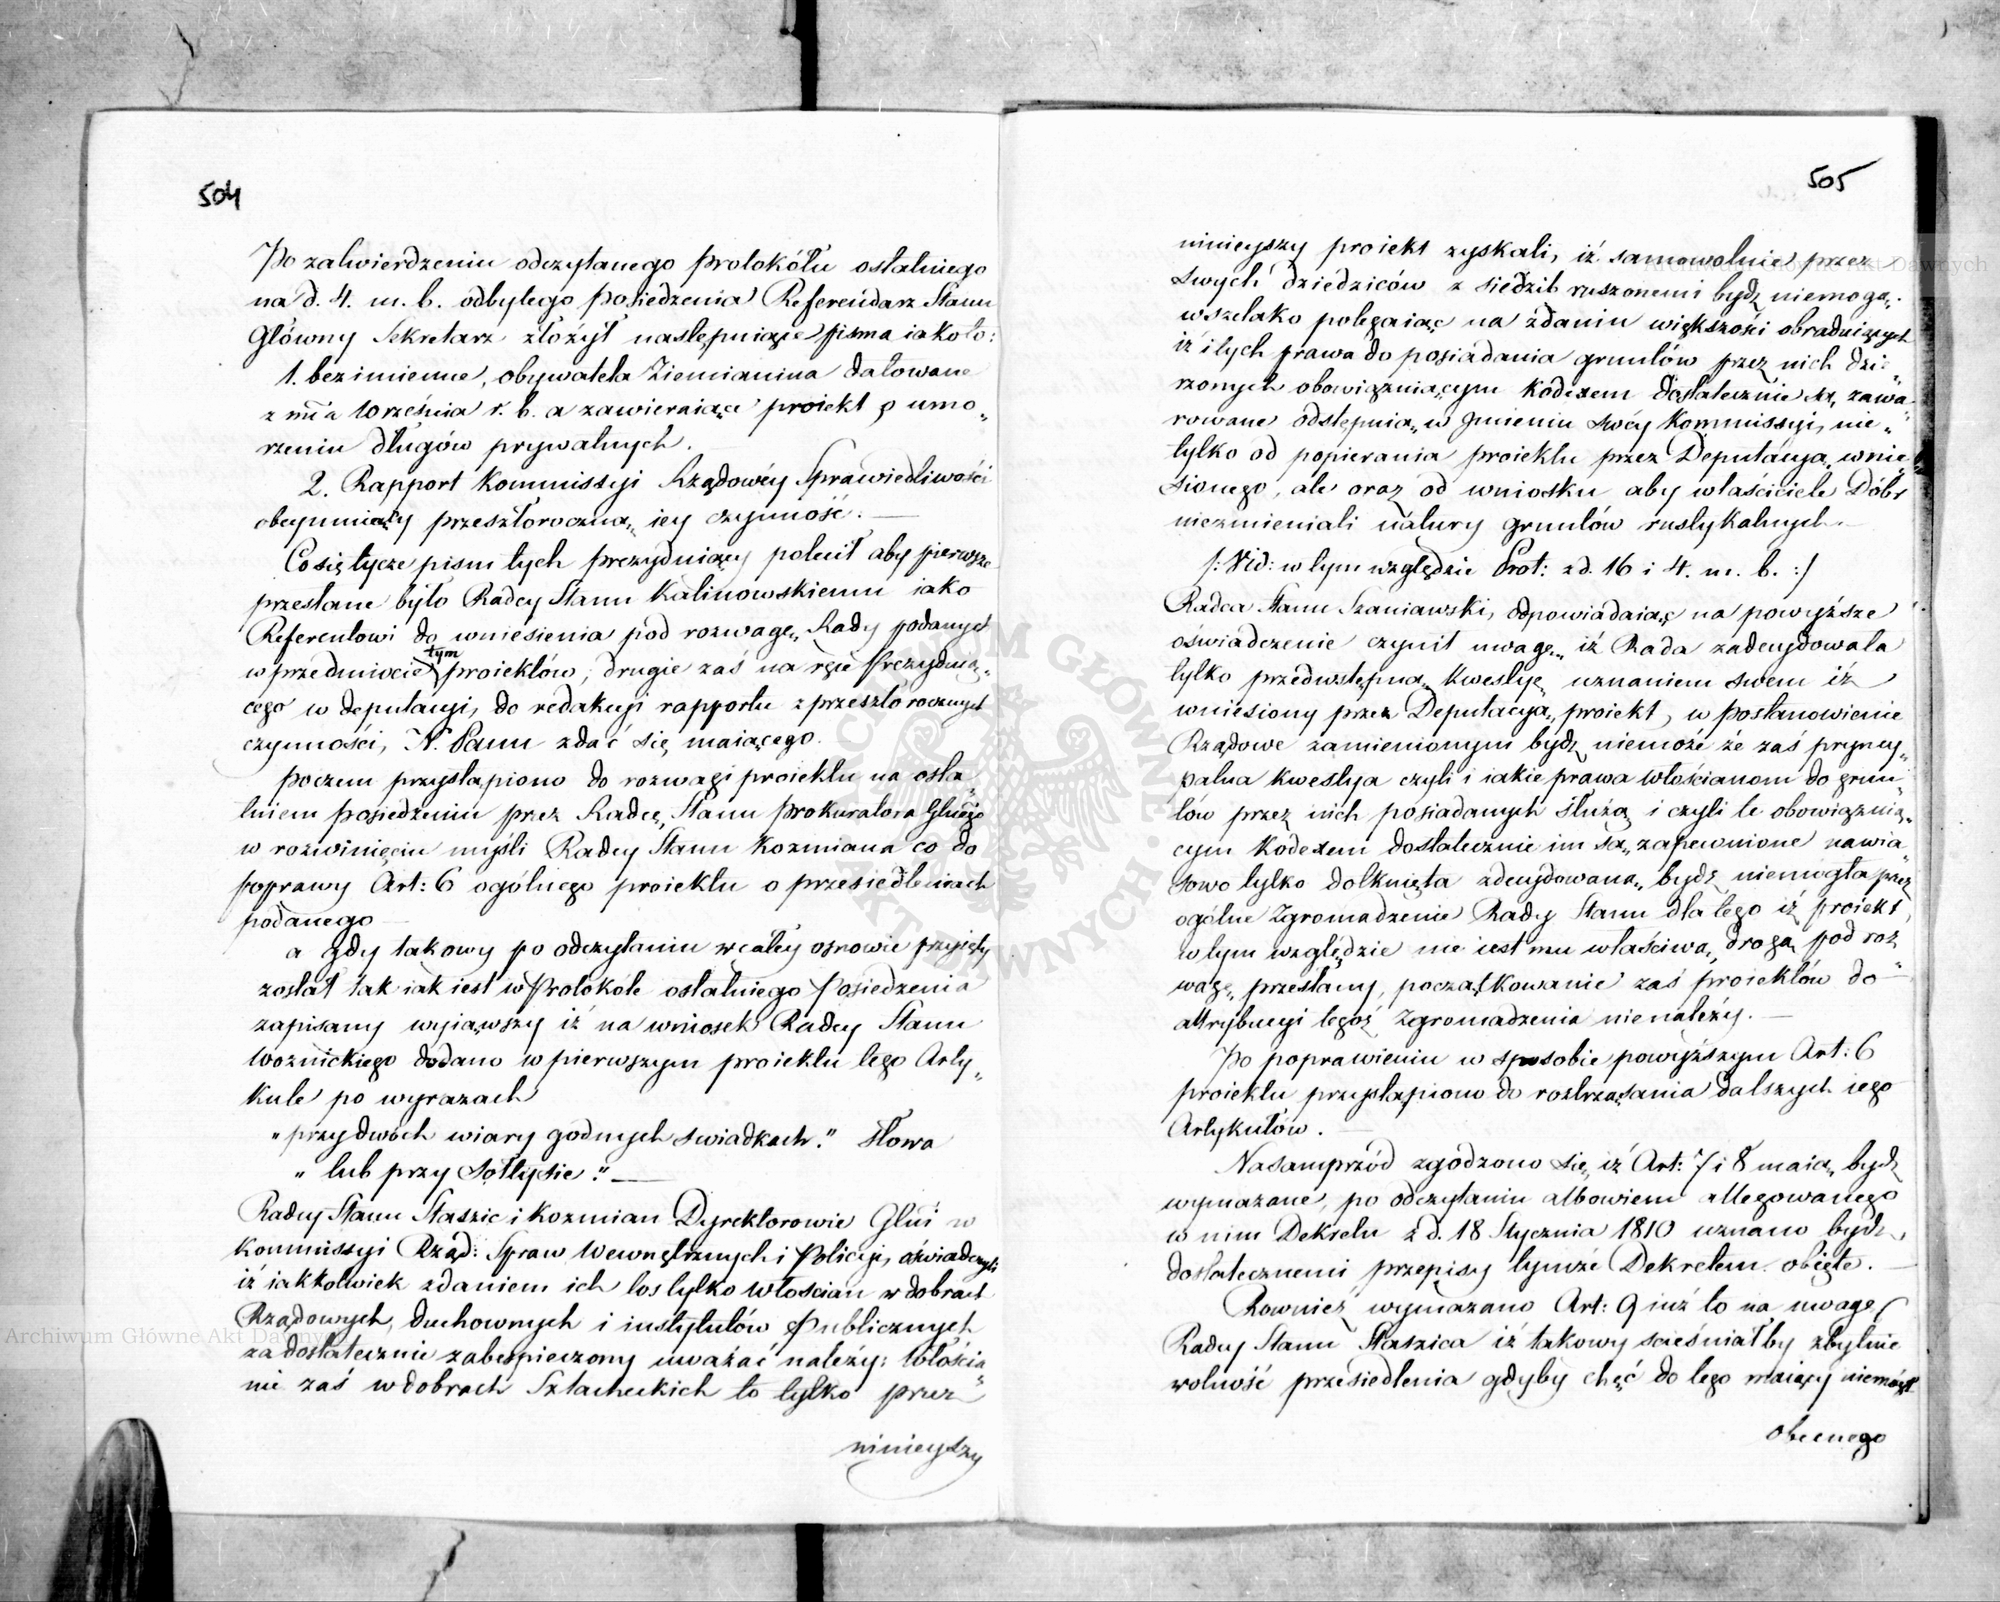 504
Po zatwierdzeniu odczytanego Protokółu ostatniego
na d. 4. m. b. odbytego Posiedzenia Referendarz Stanu
Główny Sekretarz złożył następuiące pisma iako to:
1. bezimienne, obywatela Ziemianina datowane
z mca Września r. b. a zawieraiące proiekt o umo„
rzeniu długów prywatnych.
2. Rapport Kommissyi Rządowéy Sprawiedliwości
obeymuiący przeszłoroczną iey czynność. —
Co się tycze pism tych Prezyduiący polecił aby pierwsze
przesłane było Radcy Stanu Kalinowskiemu iako
Referentowi do wniesienia pod rozwagę Rady podanych
w przedmiocie tym proiektów, drugie zaś na ręce Prezyduią„
cego w deputacyi, do redakcyi rapportu z przeszłorocznych
czynności, N. Panu zdać się maiącego.
Poczem przystąpiono do rozwagi proiektu na osta„
tniem Posiedzeniu przez Radcę Stanu Prokuratora Głnego
w rozwinięciu myśli Radcy Stanu Kozmiana co do
poprawy Art: 6 ogólnego proiektu o przesiedleniach
podanego —
a gdy takowy po odczytaniu w całéy osnowie przyięty
został tak iak iest w Protokóle ostatniego Posiedzenia
zapisany wyiąwszy iż na wniosek Radcy Stanu
Woznickiego dodano w pierwszym proiektu tego Arty„
kule po wyrazach
„przy dwóch wiary godnych swiadkach." słowa
„lub przy Sołtysie". —
Radcy Stanu Staszic i Kozmian Dyrektorowie Głni w
Kommissyi Rząd: Spraw Wewnętrznych i Policyi, oświadczyli
iż iakkolwiek zdaniem ich los tylko włoscian w dobrach
Rządowych, duchownych i instytutów Publicznych
za dostatecznie zabespieczony uważać należy: Włościa„
nie zaś w dobrach Szlacheckich to tylko przez
ninieyszy
505
ninieyszy proiekt zyskali, iż samowolnie przez
swych dziedziców z siedzib ruszonemi bydź niemogą.
wszelako polegaiąc na zdaniu większości obraduiących
iż i tych prawa do posiadania gruntów przez nich dzie„
rzonych obowiązuiącym Kodexem dostatecznie są zawa„
rowane odstępuią w Jmieniu swéy Kommissyi, nie„
tylko od popierania proiektu przez Deputacyą wnie„
sionego, ale oraz od wniosku aby właściciele Dóbr
niezmieniali natury gruntów rustykalnych. —
/: Vid: w tym względzie Prot: z d. 16 i 4. m. b. :/
Radca Stanu Szaniawski, odpowiadaiąc na powyższe
oświadczenie czynił uwagę iż Rada zadecydowała
tylko przedwstępną Kwestyę uznaniem swem iż
wniesiony przez Deputacyą proiekt, w Postanowienie
Rządowe zamienionym bydź niemoże że zaś pryncy„
palna kwestya czyli i iakie prawa włościanom do grun„
tów przez nich posiadanych służą i czyli te obowiązuią„
cym Kodexem dostatecznie im są zapewnione nawia„
sowo tylko dotknięta zdecydowaną bydź niemogła przez
ogólne Zgromadzenie Rady Stanu dla tego iż proiekt
w tym względzie nie iest mu właściwą drogą pod roz„
wagę przesłany, początkowanie zaś proiektów do
attrybucyi tegoż Zgromadzenia nienależy. —
Po poprawieniu w sposobie powyższym Art: 6
proiektu przystąpiono do roztrząsania dalszych iego
Artykułów. —
Nasamprzód zgodzono się iż Art: 7 i 8 maią bydź
wymazane, po odczytaniu albowiem allegowanego
w nim Dekretu z d. 18 Stycznia 1810 uznano bydź
dostatecznemi przepisy tymże Dekretem obięte. —
Rownież wymazano Art: 9 iuż to na uwagę
Radcy Stanu Staszica iż takowy scieśniałby zbytnie
wolność przesiedlenia gdyby chęć do tego maiący niemógł
obecnego